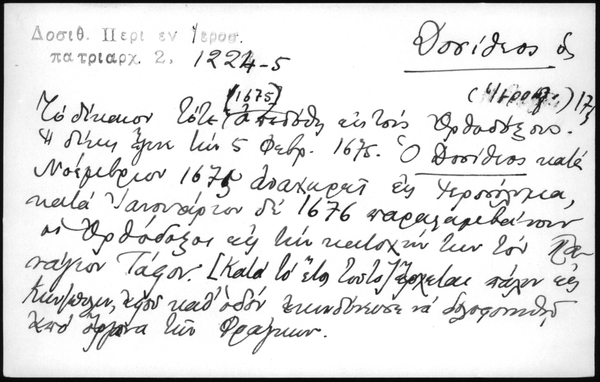 Δοσιθ. Περι εν Ιεροσ.
πατριαρχ. 2. 1224-5
Δοσίθεος ὁς
(Ἱεροσ.) 17
(1675)
Τὸ δίκαιον τότε ἀπεδόθη εἰς τοὺς Ὀρθοδόξους.
Ἡ δίκη ἔγινε τὴν 5 Φεβρ. 1675. Ὁ Δοσίθεος κατὰ
Νοέμβριον 1675 ἀναχωρεῖ εἰς Ἱεροσόλυμα,
κατὰ Ἰανουάριον δὲ 1676 παραλαμβάνουν
οἱ Ὀρθόδοξοι εἰς τὴν κατοχήν των τὸν Πα-
νάγιον Τάφον. [Κατὰ τὸ ἔτος τοῦτο] ἔρχεται πάλιν εἰς
Κων/πολιν, καθ' ὁδὸν ἐκινδύνευσε νὰ δολοφονηθῇ
ἀπὸ ὄργανα τῶν Φράγκων.